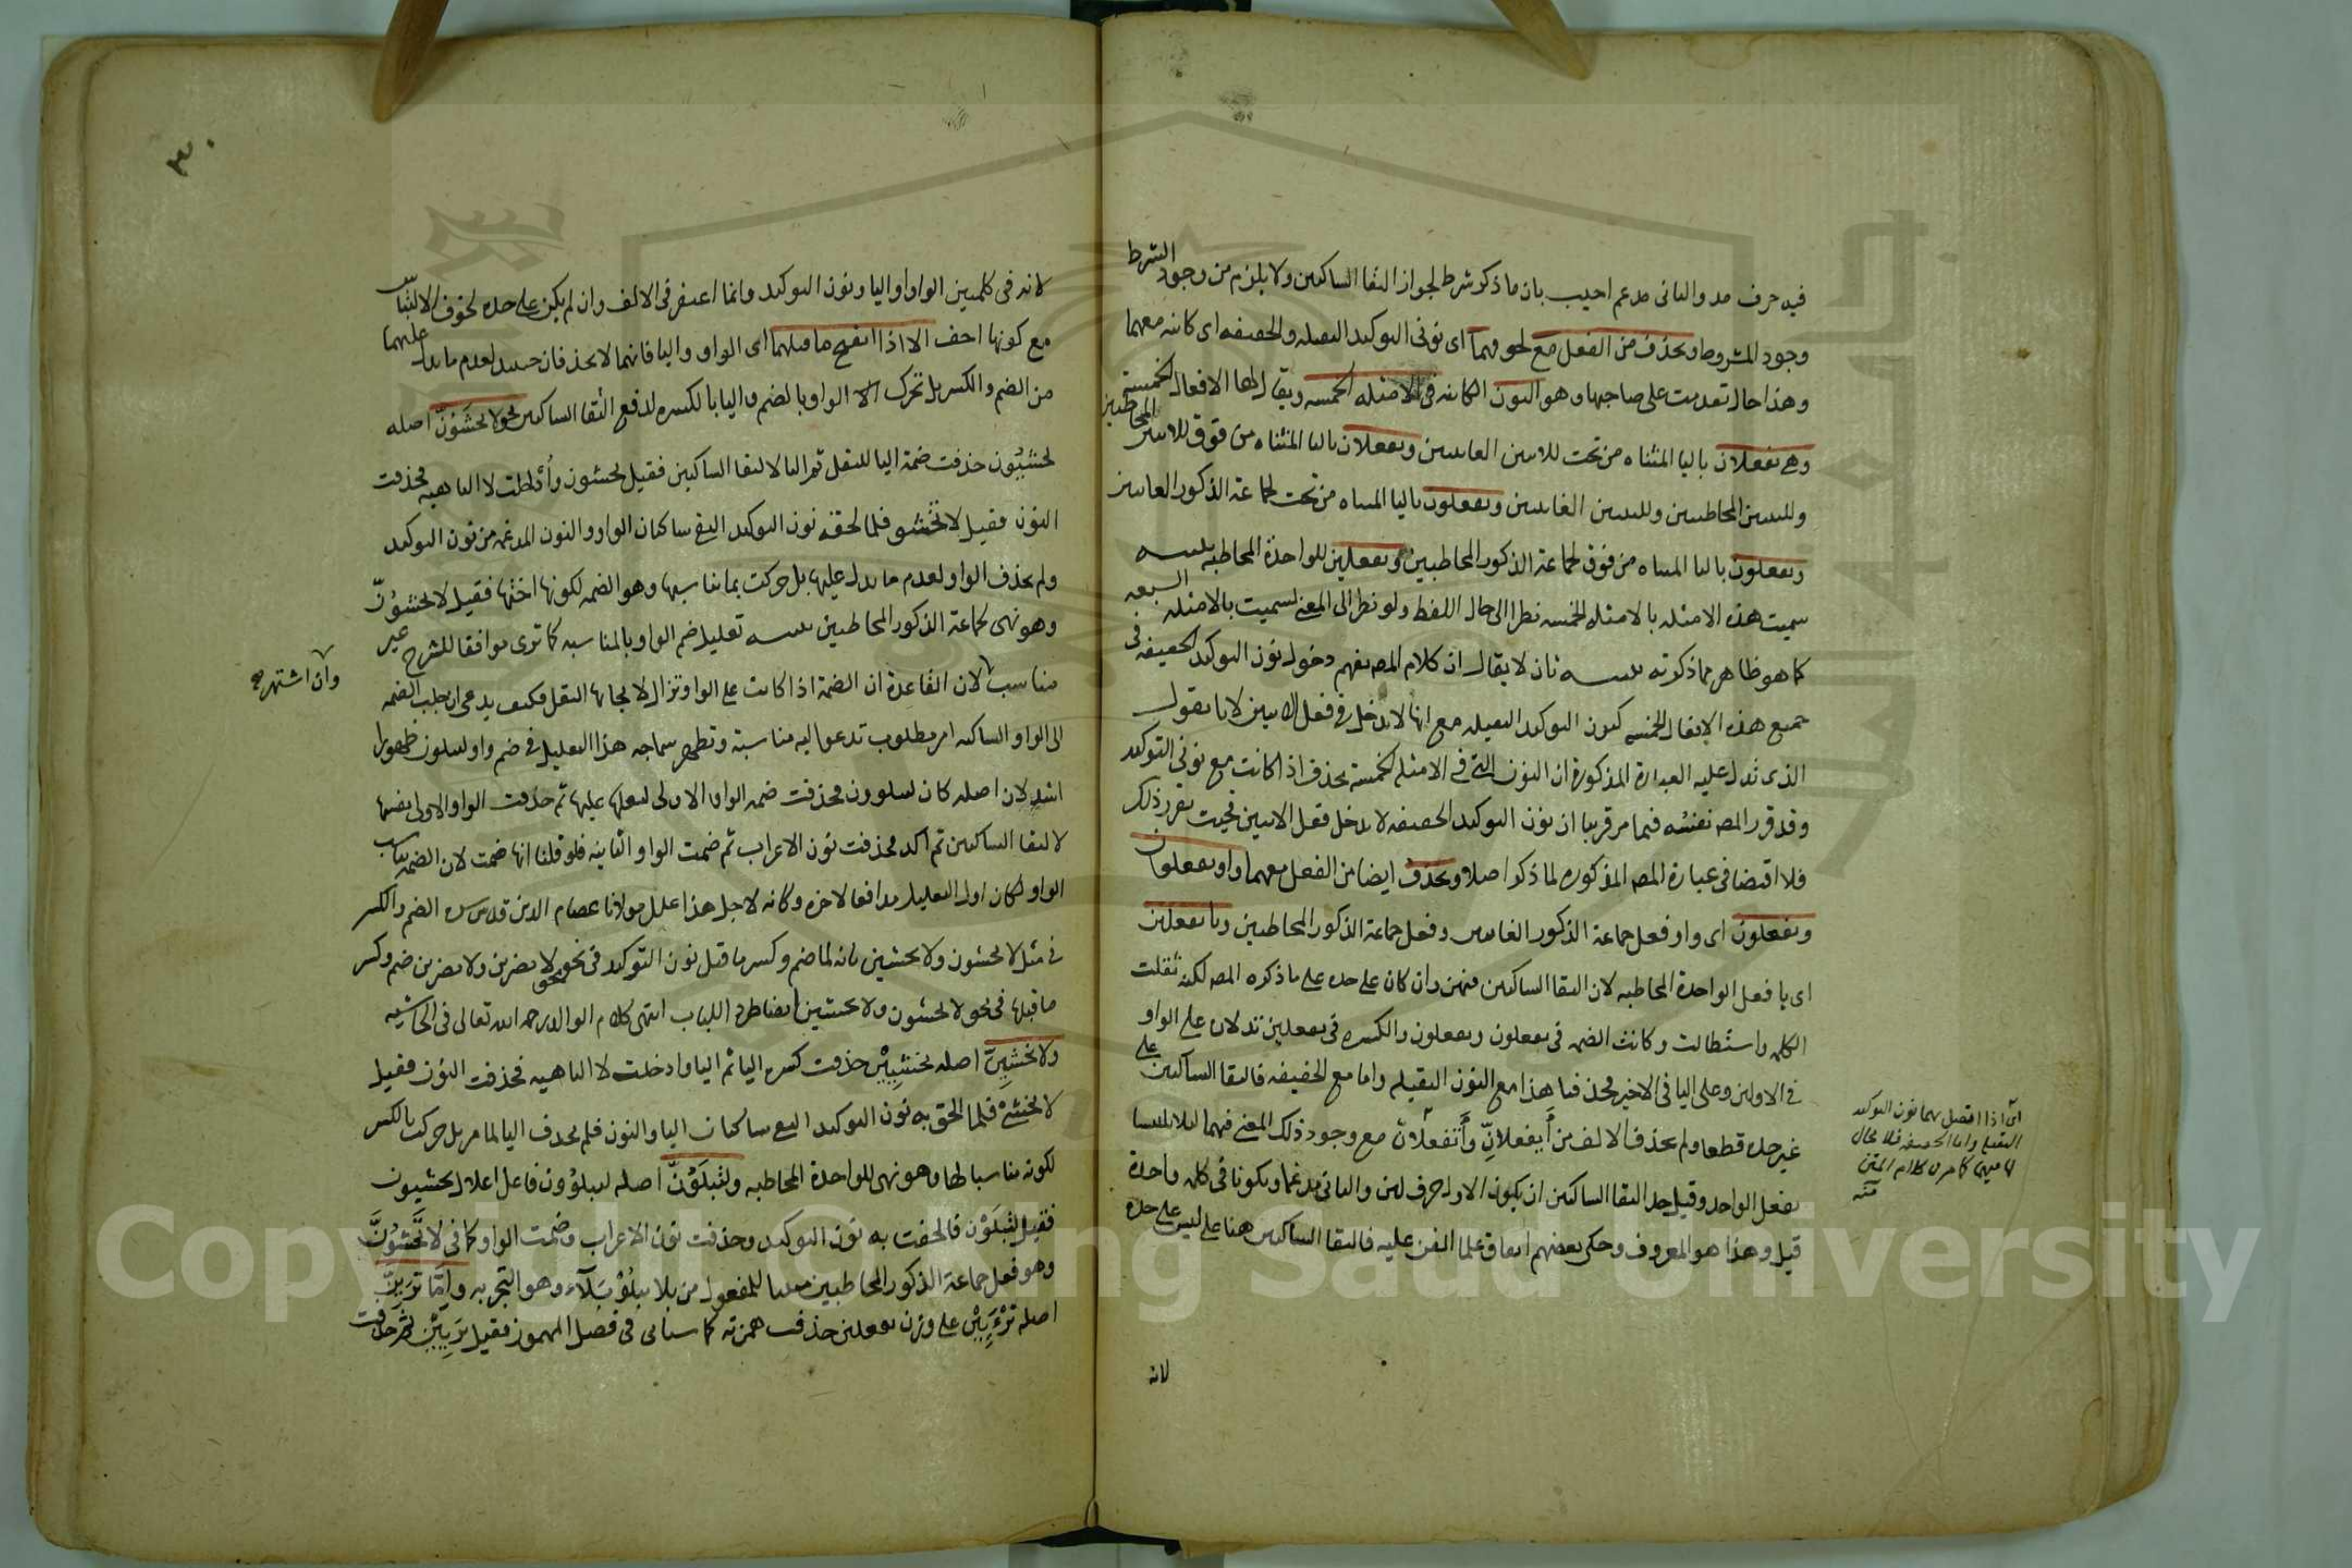 فيه حرف مد والثاني مدغم اجيب بان ما ذكر شرط لجواز التقا الساكنين ولا يلزم من وجود الشرط
وجود المشروط ويحذف من الفعل مع اي نوني التوكيد الثقيلة والخفيفة اي كائنة معهما
وهذا حال تقدمت على صاحبها وهو النون الكائنة في الامثلة الخمسة ويقال لها الافعال الخمسة
وهي يفعلان باليا المثناه من تحت للاثنين الغائبين وتفعلان بالتا المثناه من فوق للاثنين المخاطبين
وللثنتين المخاطبتين وللثنتين الغائبتين ويفعلون باليا المثناه من تحت لجماعة الذكور الغائبين
وتفعلون بالتا المثناه من فوق لجماعة الذكور المخاطبين وتفعلين للواحدة المخاطبة تنبيه
سميت هذه الامثلة بالامثلة الخمسة نظرا الى حال اللفظ ولو نظر الى المعنى لسميت بالامثلة السبعة
كما هو ظاهر مما ذكرته تنبيه ثان لا يقال ان كلام المص يفهم دخول نون التوكيد الخفيفة في
جميع هذه الافعال الخمسة كنون التوكيد الثقيلة مع انها لا تدخل في فعل الاثنين لانا نقول
الذي تدل عليه العبارة المذكورة ان النون التي في الامثلة الخمسة تحذف اذا كانت مع نوني التوكيد
وقد قرر المص نفسه فيما مر قريبا ان نون التوكيد الخفيفة لا تدخل فعل الاثنين فحيث تقرر ذلك
فلا اقتضا في عبارة المص المذكورة لما ذكر اصلا ويحذف ايضا من الفعل معهما واو يفعلون
وتفعلون اي واو فعل جماعة الذكور الغائبين وفعل جماعة الذكور المخاطبين ويا تفعلين
اي يا فعل الواحدة المخاطبة لان التقا الساكنين فيهن وان كان على حده على ما ذكره المص لكنه ثقلت
الكلمة واستطالت وكانت الضمة في يفعلون وتفعلون والكسرة في تفعلين تدلان على الواو
في الاولين وعلى اليا في الاخير فحذفتا هذا مع النون الثقيلة واما مع الخفيفة فالتقا الساكنين على
غير حده قطعا ولم يحذف الالف من يفعلانّ وتفعلانّ مع وجود ذلك المعنى فيهما لئلا يلتبسا
بفعل الواحد وقيل حد التقا الساكنين ان يكون الاول حرف لين والثاني مدغما ويكونا في كلمة واحدة
قيل وهذا هو المعروف وحكى بعضهم اتفاق علما الفن عليه فالتقا الساكنين هنا على ليس على حده
لانه
اي اذا اتصل بهما نون التوكيد
الثقيلة واما الخفيفة فلا
كما مر من كلام المتن
منه
٣٠
لانه في كلمتين الواو او اليا ونون التوكيد وانما اغتفر في الالف وان لم يكن على حده لخوف الالتباس
مع كونها اخف الا اذا انفتح ما قبلهما اي الواو واليا فانهما لا يحذفان حينئذ لعدم ما يدل عليهما
من الضم والكسر بل تحرك الواو بالضم واليا بالكسرة لدفع التقا الساكنين نحو لا تخشَوُنّ اصله
تخشيُون حذفت ضمة اليا للثقل ثم اليا لالتقا الساكنين فقيل تخشون وأدخلت لا الناهية فحذفت
النون فقيل لا تخشو فلما لحقه نون التوكيد التقى ساكنان الواو والنون المدغمة من نون التوكيد
ولم يحذف الواو لعدم ما يدل عليها بل حركت بما يناسبها وهو الضمة لكونها اختها فقيل لا تخشوُنّ
وهو نهي لجماعة الذكور المخاطبين تنبيه تعليل ضم الواو بالمناسبة كما ترى موافقا للشرح غير
مناسب لان القاعدة ان الضمة اذا كانت على الواو تزال لايجابها الثقل فكيف يدعى ان جلب الضمة
وان اشتهر صح
الى الواو الساكنة امر مطلوب تدعو اليه مناسبة وتظهر سماجة هذا التعليل في ضم واو لتبلون ظهورا
اشد لان اصله كان لتبلوون فحذفت ضمة الواو الاولى لثقلها عليها ثم حذفت الواو الاولى نفسها
لالتقا الساكنين ثم اكد فحذفت نون الاعراب ثم ضمت الواو الثانية فلو قلنا انها ضمت لان الضمة تناسب
الواو لكان اول التعليل مدافعا لاخره وكانه لاجل هذا علل مولانا عصام الدين قدس سره الضم والكسر
في مثل لا تخشون ولا تخشين بانه لما ضم وكسر ما قبل نون التوكيد في نحو لا تضربن ولا تضربن ضم وكسر
ما قبلها في نحو لا تخشون ولا تخشين ايضا طردا للباب انتهى كلام الوالد رحمه الله تعالى في الحاشية
ولا تخشيِنّ اصله تخشيِيْن حذفت كسرة اليا ثم اليا وادخلت لا الناهية فحذفت النون فقيل
لا تخشيْ فلما الحق به نون التوكيد التقى ساكنان اليا والنون فلم يحذف اليا لما مر بل حركت بالكسر
لكونه مناسبا لها وهو نهي للواحدة المخاطبة ولتبلَوُنّ اصله لتبلوُون فاعل اعلال تخشيون
فقيل لتبلَوْن فالحقت به نون التوكيد وحذفت نون الاعراب وضمت الواو كما في لا تخشوُنّ
وهو فعل جماعة الذكور المخاطبين مبنيا للمفعول من بلا يبلو بلاء وهو التجربة واما ترَيِنّ
اصله ترْءَيِيْن على وزن تفعلين حذفت همزته كما سياتي في فصل المهموز فقيل ترَيِيْن ثم حذفت